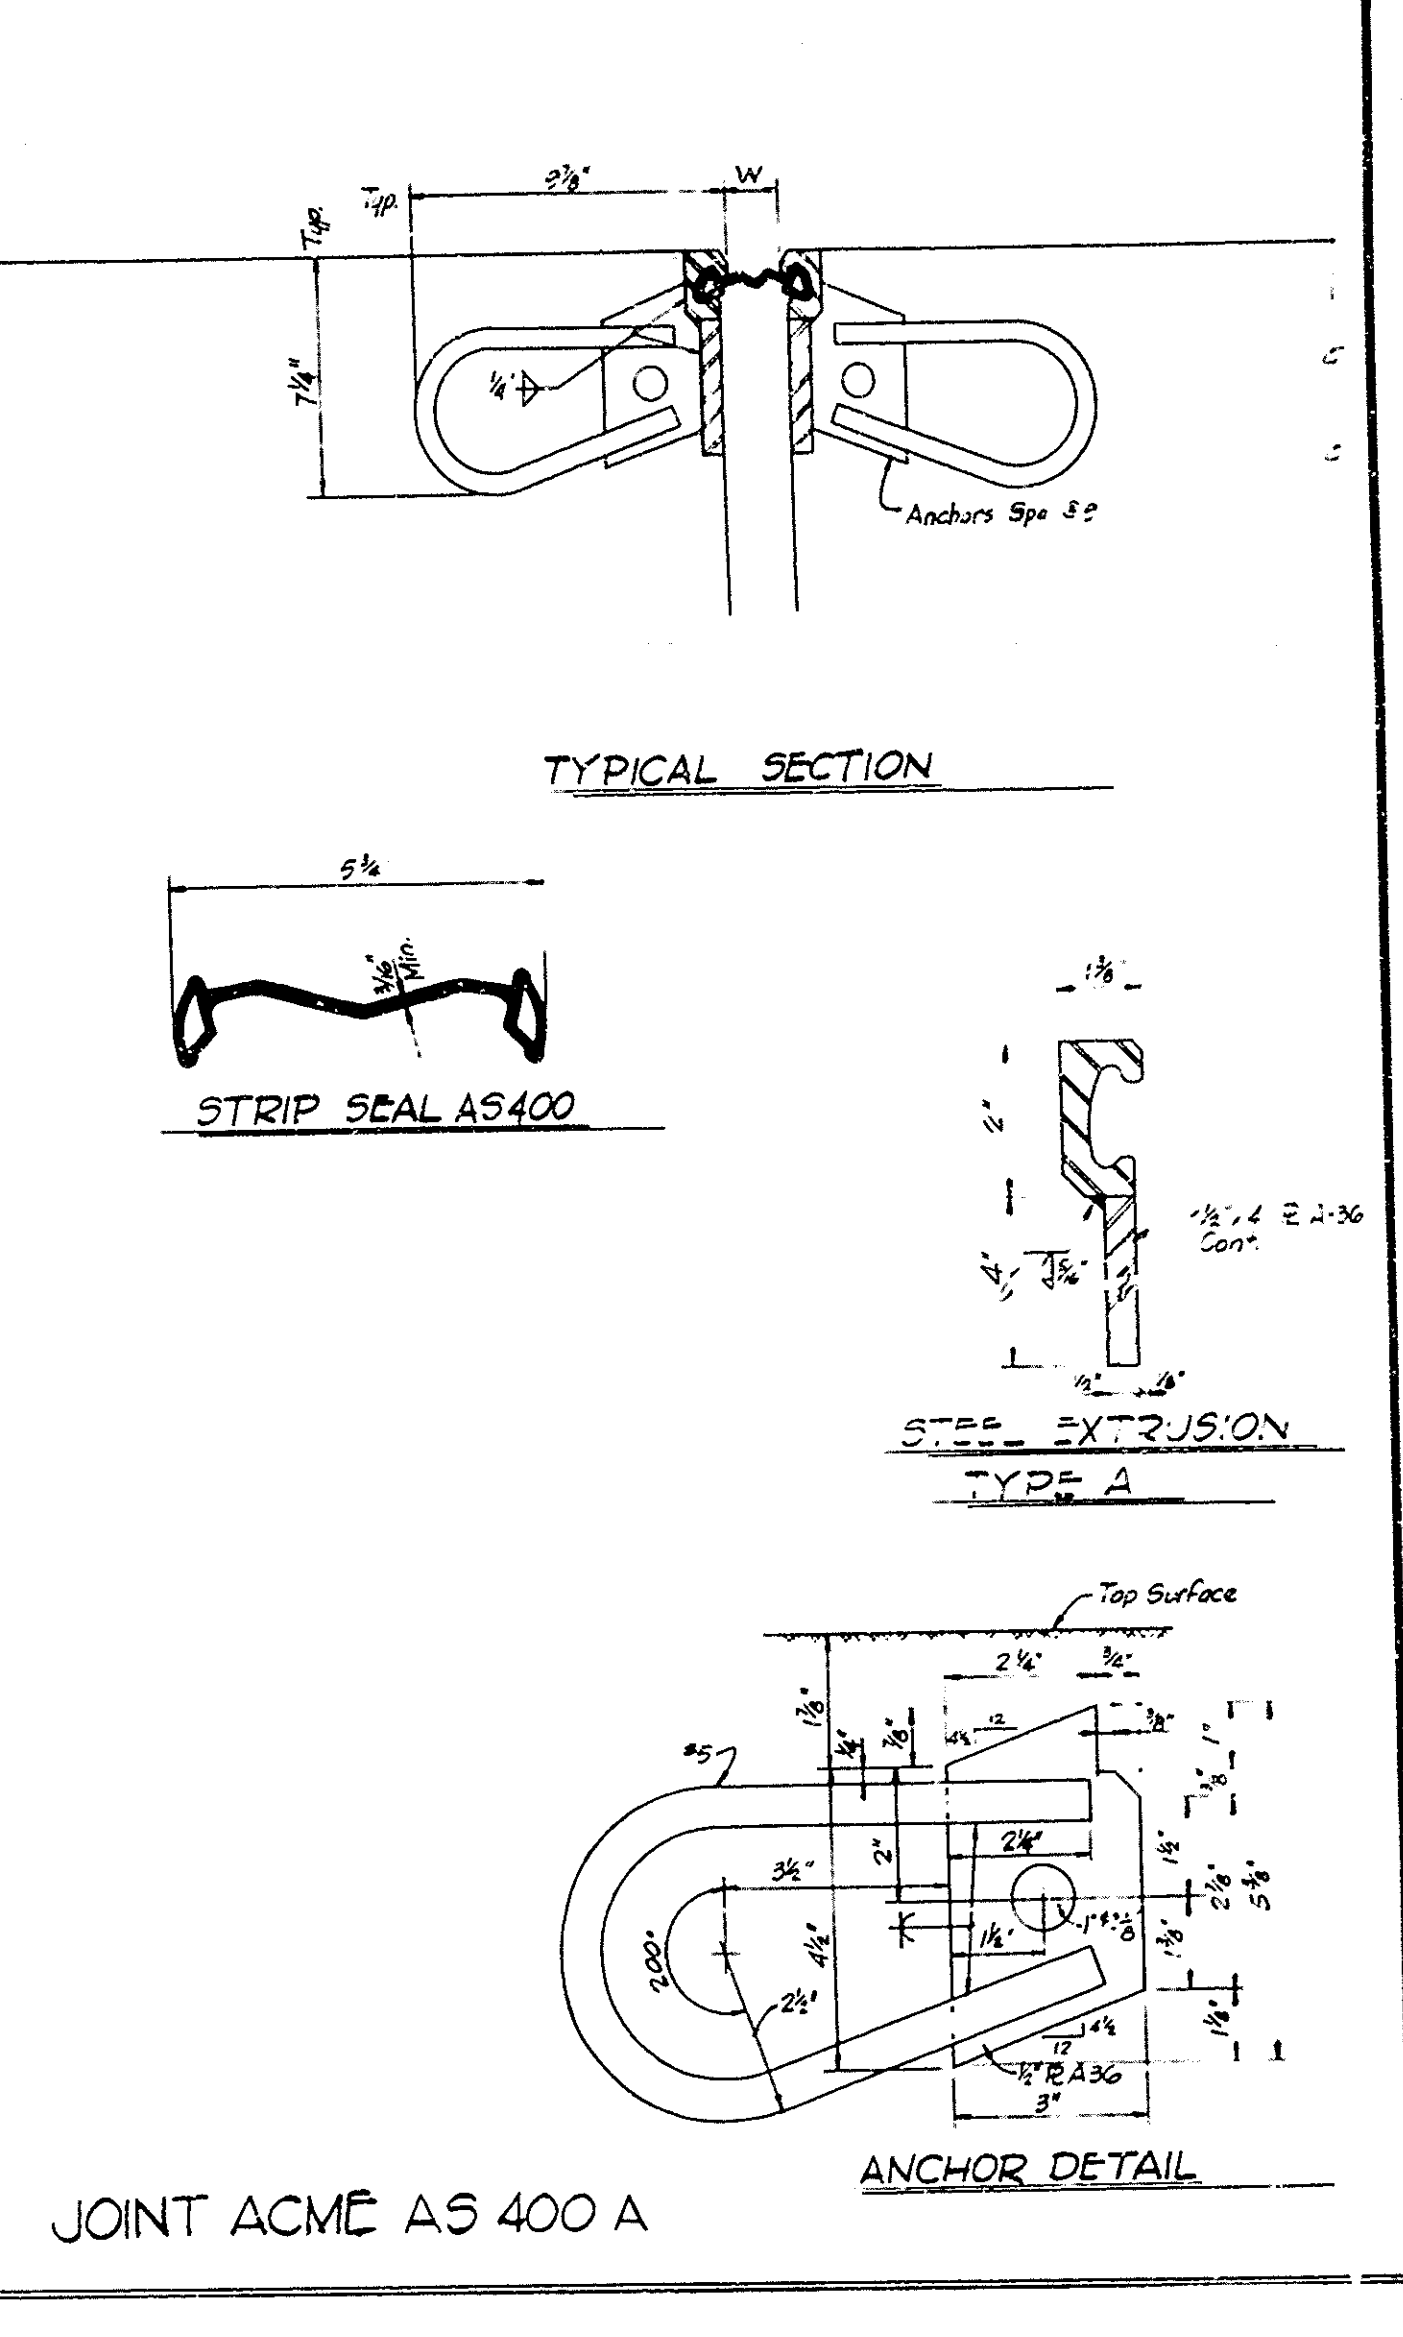 W
Typ.
Typ.
7¼"
¼"
Anchors
TYPICAL SECTION
5¾
3/16"
Min.
STRIP SEAL AS400
1⅜"
2"
4"
5/16"
A-36
Cont.
½"
⅛"
STEEL EXTRUSION
TYPE A
Top Surface
2¼"
¾"
1⅞"
¼"
⅞"
4½
12
⅜"
1"
⅜"
#5
2"
2¼"
3½"
1½"
2⅞"
5⅜"
4½"
1½"
1⅜"
200°
2½"
1⅛"
4½
12
½" ℞ A36
3"
ANCHOR DETAIL
JOINT ACME AS 400 A